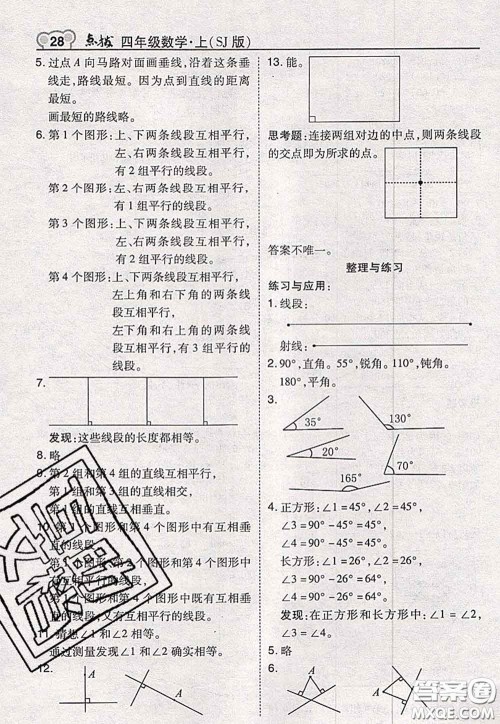 28 点拨 四年级数学·上(SJ版)
5. 过点A向马路对面画垂线,沿着这条垂
线走,路线最短。因为点到直线的距离
最短。
画最短的路线略。
6. 第1个图形:上、下两条线段互相平行,
左、右两条线段互相平行,
有2组平行的线段。
第2个图形:左、右两条线段互相平行,
有1组平行的线段。
第3个图形:上、下两条线段互相平行,
左、右两条线段互相平行,
有2组平行的线段。
第4个图形:上、下两条线段互相平行,
左上角和右下角的两条线
段互相平行,
左下角和右上角的两条线
段互相平行,有3组平行的
线段。
7.
发现:这些线段的长度都相等。
8. 略
9. 第2组和第4组的直线互相平行,
第1组和第3组的直线相交,
第1组的直线互相垂直。
10. 第1个图形和第4个图形中有互相垂
直的线段。
第2个图形和第4个图形中
有互相平行的线段。
第4个图形中既有互相垂
直的线段,又有互相平行的线段。
11. 猜想∠1和∠2相等。
通过测量发现∠1和∠2确实相等。
12.
A
A
13. 能。
思考题:连接两组对边的中点,则两条线段
的交点即为所求的点。
答案不唯一。
整理与练习
练习与应用:
1. 线段:
射线:
2. 90°,直角。55°,锐角。110°,钝角。
180°,平角。
3.
35°
130°
20°
70°
165°
4. 正方形:∠1=45°,∠2=45°,
∠3=90°-45°=45°,
∠4=90°-45°=45°。
长方形:∠1=26°,∠2=26°,
∠3=90°-26°=64°,
∠4=90°-26°=64°。
发现:在正方形和长方形中:∠1=∠2,
∠3=∠4。
5. 略
6.
A
A
答案圈
MXQE.COM